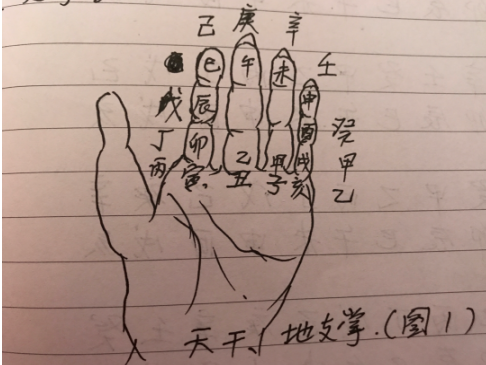 己 庚 辛 壬
巳 午 未
戊 辰 申
丁 卯 酉 癸
丙 乙 甲 戌 甲
寅 丑 子 亥 乙
天干、地支掌.(图1)